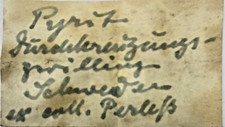 Pyrit
Durchkreuzungs-
zwilling
Schweden
ex coll. Perleß